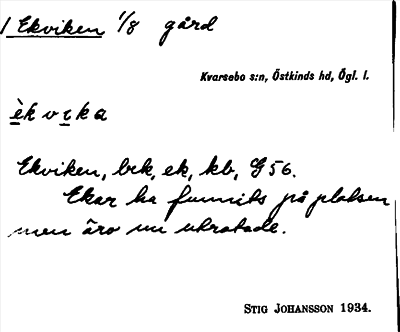 / Ekviken 1/8 gård
Kvarsebo s:n, Östkinds hd, Ögl. l.
èkvɩka
Ekviken, bek, ek, kb, G 56.
Ekar ha funnits på platsen
men äro nu utrotade.
STIG JOHANSSON 1934.